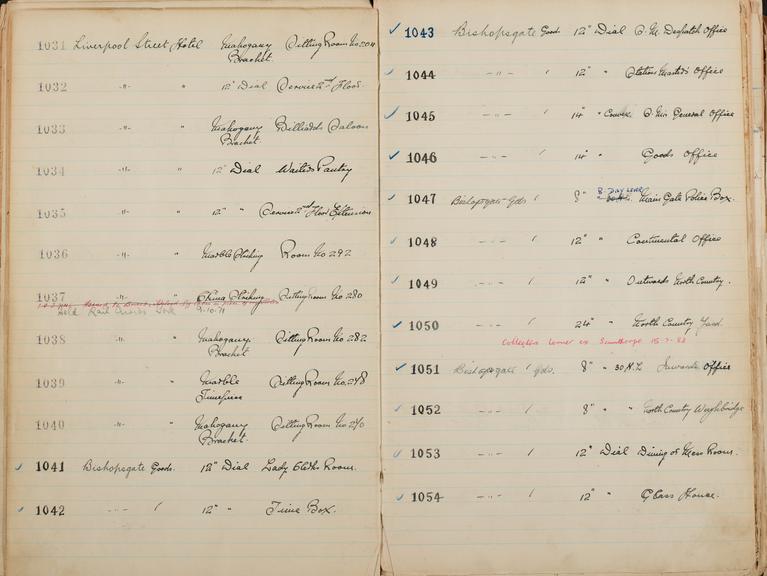 1031 Liverpool Street Hotel Mahogany Sitting Room No. 204
Bracket.
1032 -"- " 12" Dial Service 2nd Floor.
1033 -"- " Mahogany Billiards Saloon
Bracket.
1034 -"- " 12" Dial Waiters Pantry
1035 -"- " 12" " Service 2nd Floor Extension
1036 -"- " Marble Striking Room No 292
1037 -"- " Striking Sitting Room No. 280
Sold Rail Queries York 9-10-71
1038 -"- " Mahogany Sitting Room No. 282
Bracket.
1039 -"- " Marble Sitting Room No. 248
Timepiece
1040 -"- " Mahogany Sitting Room No. 240
Bracket.
✓ 1041 Bishopsgate Goods. 12" Dial Lady Clerks Room.
✓ 1042 -"- " 12" " Time Box.
✓ 1043 Bishopsgate Goods 12" Dial G.M. Despatch Office
✓ 1044 -"- " 12" " Station Masters Office
✓ 1045 -"- " 14" " General Office
✓ 1046 -"- " 14" " Goods Office
✓ 1047 Bishopsgate Gds " 8" 8-DAY LEVER Main Gate Police Box.
✓ 1048 -"- " 12" " Continental Office
✓ 1049 -"- " 12" " Outwards North Country.
✓ 1050 -"- " 24" " North Country Yard
15-7-83
✓ 1051 Bishopsgate Gds. 8" " 30 H. Inwards Office
✓ 1052 -"- " 8" " " North Country Weighbridge
✓ 1053 -"- " 12" Dial Dining or Mess Room.
✓ 1054 -"- " 12" " Glass House.